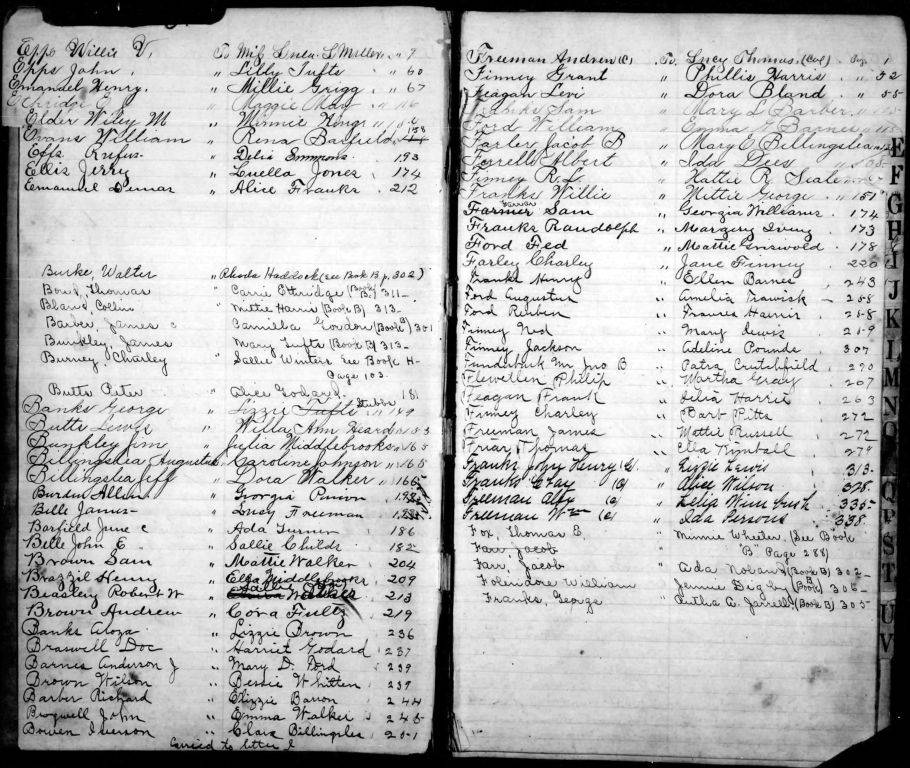 Epps Willie V. To Mif Lucu. L Miller " 7
Epps John. " Lilly Tufts " 60
Emanuel Henry. " Millie Grigg " 67
Maggie May " 116
Elder Wiley M " Minnie
Evans William " Rena Barfield 158
Effs Rufus. " Delia Emmons. 193
Ellis Jerry " Luella Jones 174
Emanuel Demas " Alice Franks 212
Burke, Walter " Rhoda Haddock (see Book B p. 302)
Bond, Thomas " Carrie Ethridge (Book B) 311
Bland, Collin " Mittie Harris (Book B) 313
Barber, James C " Camilla Gordon (Book B) 301
Bunkley, James " Mary Tufts (Book B) 313
Burney, Charley " Sallie Winters See Book H-
Page 103.
Butts Peter " Alice Godard. Stubbs 181
Banks George " Lizzie Taft " 149
Butts Lewis " Willa Ann Heard 153
Bunkley Jim " Julia Middlebrooks " 165
Billingslea Augustus " Caroline Johnson " 165
Billingslea Jeff " Dora Walker " 166
Burden Allen " Georgia Pinion
Bille James " Lucy Freeman
Barfield June C " Ada Turner 186
Belle John E " Sallie Childs 182
Brown Sam " Mattie Walker 204
Brazzil Henry " Ella Middlebrooks 209
Beasley Robert W " Walker 213
Brown Andrew " Cora Fultz 219
Banks Aloza " Lizzie Brown 236
Braswell Doc " Harriet Godard 237
Barnes Anderson J " Mary D. Ford 239
Brown Wilson " Bessie Whitten 239
Barber Richard " Elizzie Barron 244
Bugwell John " Emma Walker 245
Bowen Iverson " Clara Billingslea 251
Carried to letter I
Freeman Andrew (C) To Lucy Thomas. (Col) Pg. 1
Finney Grant " Phillis Harris " 52
Feagan Levi " Dora Bland " 55
Sam " Mary L Barber
Ford William " Emma Barnes
Farley Jacob B " Mary C Billingslea
Ferrell Albert " Ida Dees
Finney R.L " Hattie R.
Franks Willie " Mittie George " 151
Farmer Sam " Georgia Williams 174
Franks Randolph " Margery Irving 173
Ford Fed " Mattie Griswold 178
Farley Charley " Jane Finney 220
Franks Henry " Ellen Barnes 243
Ford Augustus " Amelia Trawick 258
Ford Reuben " Frances Harris 258
Finney Ned " Mary Lewis 259
Finney Jackson " Adeline Pounds 307
Funderburk Mr Jno B " Patra Crutchfield 290
Flewellen Phillip " Martha Gray 207
Feagan Frank " Delia Harris 263
Finney Charley " Barb Pitts 272
Freeman James " Mattie Russell 272
Friar Thomas " Ella Kimball 279
Franks John Henry (C) " Lizzie Lewis 313
Franks Clay (C) " Alice Wilson 328
Freeman Alf (C) " Zelia Wimbush 335
Freeman Wm (C) " Ida Persons 338
Fox, Thomas E. " Minnie Wheeler, (See Book
Farr, Jacob " "B" Page 288)
Farr, Jacob " Ada Nolan (Book B) 302
Folendore William " Jennie Digby (Book B) 305
Franks, George " Rutha A. Jarrell (Book B) 305
E
F
G
H
I
J
K
L
M
N
O
P
Q
R
S
T
U V